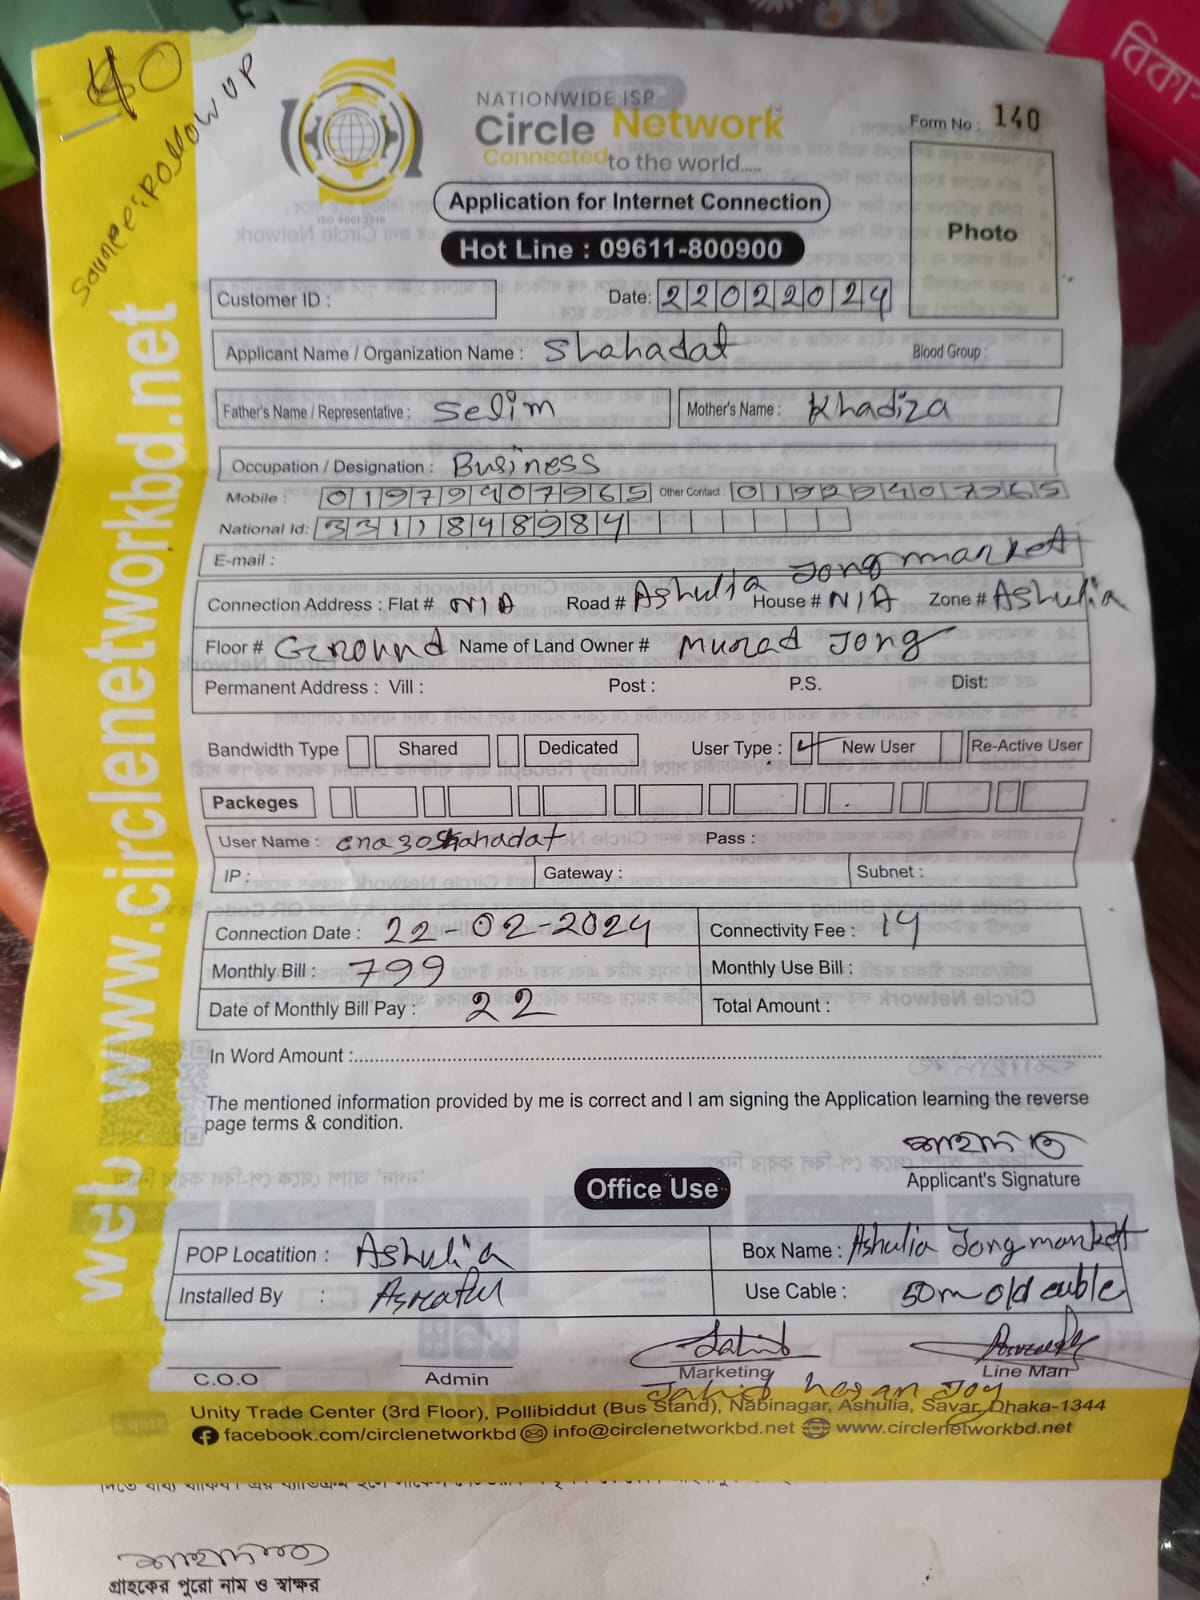 140
Source: Follow UP
বিকা
NATIONWIDE ISP
Circle Network
Connected to the world.....
ISO 9001:2015
Form No : 140
Application for Internet Connection
Photo
Hot Line : 09611-800900
Customer ID :
Date: 22022024
Applicant Name / Organization Name : Shahadat Blood Group :
Father's Name / Representative : Selim Mother's Name : Khadiza
Occupation / Designation : Business
Mobile : 01979407965 Other Contact : 01929407965
National Id: 3311848984
E-mail :
Jong market
Connection Address : Flat # N/A Road # Ashulia House # N/A Zone # Ashulia
Floor # Ground Name of Land Owner # Murad Jong
Permanent Address : Vill : Post : P.S. Dist:
Bandwidth Type Shared Dedicated User Type : New User Re-Active User
Packeges
User Name : cna30shahadat Pass :
IP : Gateway : Subnet :
Connection Date : 22-02-2024 Connectivity Fee : 14
Monthly Bill : 799 Monthly Use Bill :
Date of Monthly Bill Pay : 22 Total Amount :
In Word Amount :
The mentioned information provided by me is correct and I am signing the Application learning the reverse
page terms & condition.
শাহাদাত
Applicant's Signature
Office Use
POP Locatition : Ashulia Box Name : Ashulia Jong market
Installed By : Asraful Use Cable : 50m old cable
C.O.O Admin Marketing Line Man
Jahid hasan Joy
Unity Trade Center (3rd Floor), Pollibiddut (Bus Stand), Nabinagar, Ashulia, Savar, Dhaka-1344
facebook.com/circlenetworkbd info@circlenetworkbd.net www.circlenetworkbd.net
web www.circlenetworkbd.net
শাহাদাত
গ্রাহকের পুরো নাম ও স্বাক্ষর